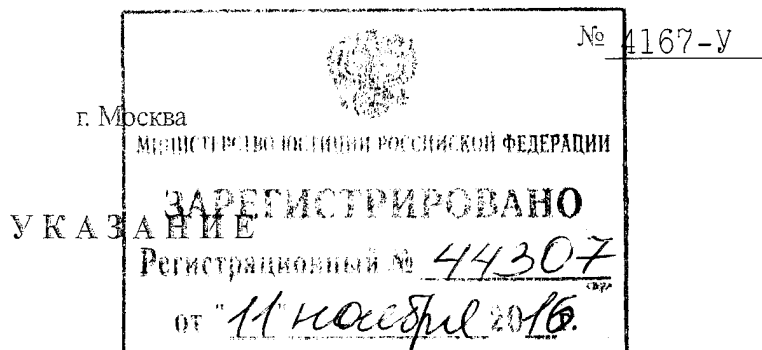 № 4167-У
г. Москва
МИНИСТЕРСТВО ЮСТИЦИИ РОССИЙСКОЙ ФЕДЕРАЦИИ
ЗАРЕГИСТРИРОВАНО
УКАЗАНИЕ
Регистрационный № 44307
от "11" ноября 2016г.